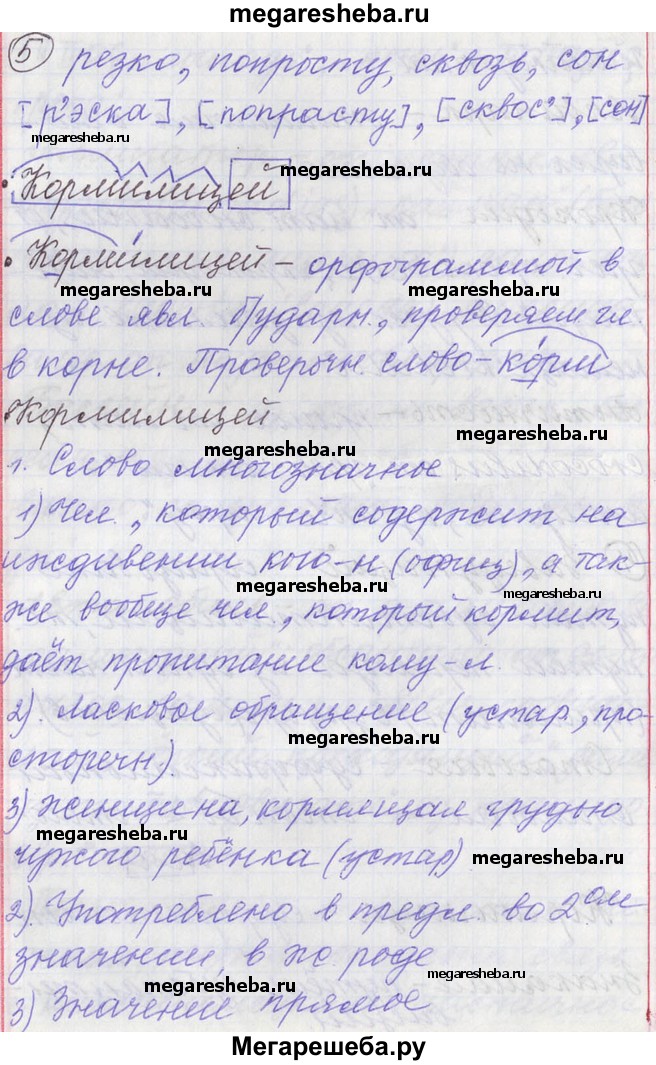 megaresheba.ru
5 резко, попросту, сквозь, сон
[р'эска], [попрасту], [сквос'], [сон]
megaresheba.ru
megaresheba.ru
• Кормилицей
• Кормилицей – орфограммой в
megaresheba.ru megaresheba.ru
слове явл. безударн., проверяем гл.
в корне. Проверочн. слово – корм
• Кормилицей
megaresheba.ru
megaresheba.ru
1. Слово многозначное
1) Чел., который содержит на
иждивении кого-н (офиц), а так-
megaresheba.ru megaresheba.ru
же вообще чел., который кормит,
даёт пропитание кому-л.
2). Ласковое обращение (устар., про-
megaresheba.ru
сторечн).
3) Женщина, кормящая грудью
megaresheba.ru
чужого ребёнка (устар) megaresheba.ru
2). Употреблено в предл. во 2ом
значении, в ж. роде
megaresheba.ru megaresheba.ru
3) Значение прямое
Мегарешеба.ру